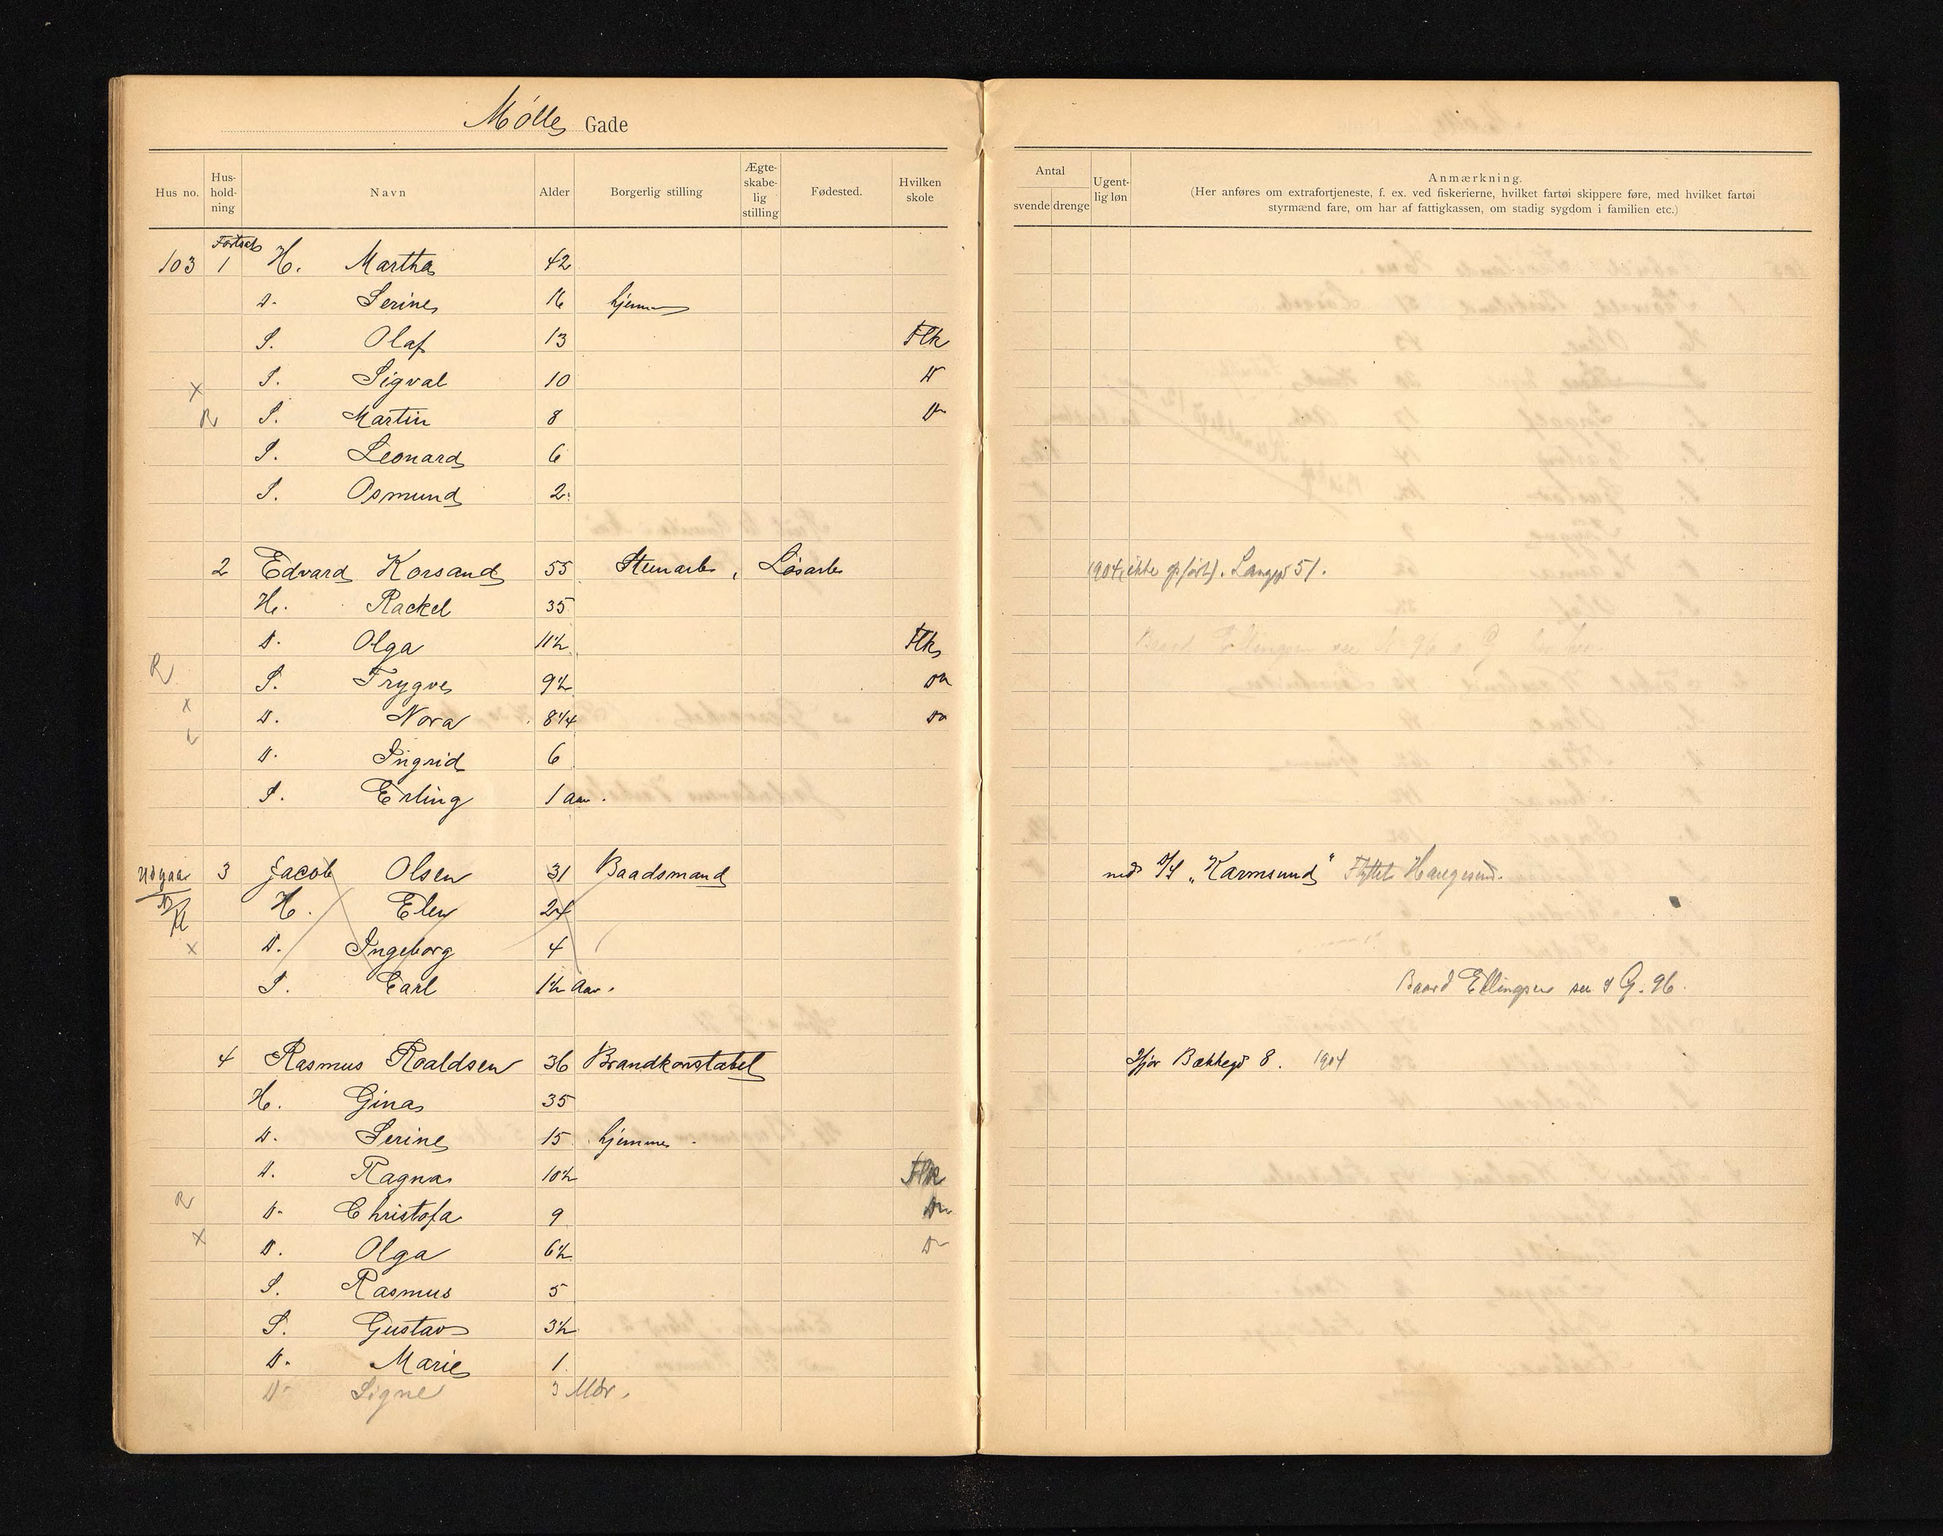 Mølle Gade
Hus no. Hus-hold-ning Navn Alder Borgerlig stilling Ægte-skabe-lig stilling Fødested. Hvilken skole
Fortsat
103 1 H. Martha 42
D. Serine 16 hjemme
S. Olaf 13 Flk
x S. Sigval 10 Do
R S. Martin 8 Do
S. Leonard 6
S. Osmund 2
2 Edvard Korsand 55 Stenarb, Løsarb
H. Rackel 35
D. Olga 11½ Flk
R S. Trygve 9½ Do
x D. Nora 8 1/4 Do
D. Ingrid 6
S. Erling 1 Aar.
Udgaar 3 Jacob Olsen 31 Baadsmand
H. Elen 24
x D. Ingeborg 4
S. Carl 1½ Aar.
4 Rasmus Roaldsen 36 Brandkonstabel
H. Gina 35
D. Serine 15 hjemme
D. Ragna 10½ Flk
R D. Christofa 9 Do
x D. Olga 6½ Do
S. Rasmus 5
S. Gustav 3½
D. Marie 1
D. Signe 3 Mdr.
Antal Ugent-lig løn Anmærkning.
svende drenge (Her anføres om extrafortjeneste, f. ex. ved fiskerierne, hvilket fartøi skippere føre, med hvilket fartøi
styrmænd fare, om har af fattigkassen, om stadig sygdom i familien etc.)
1904, ikke opført. Langgd 51.
Baard Ellingsen see No 96 a G
med D/S "Karmsund" Flyttet Haugesund.
Baard Ellingsen see G. 96.
Ifjor Bækkegd 8. 1904